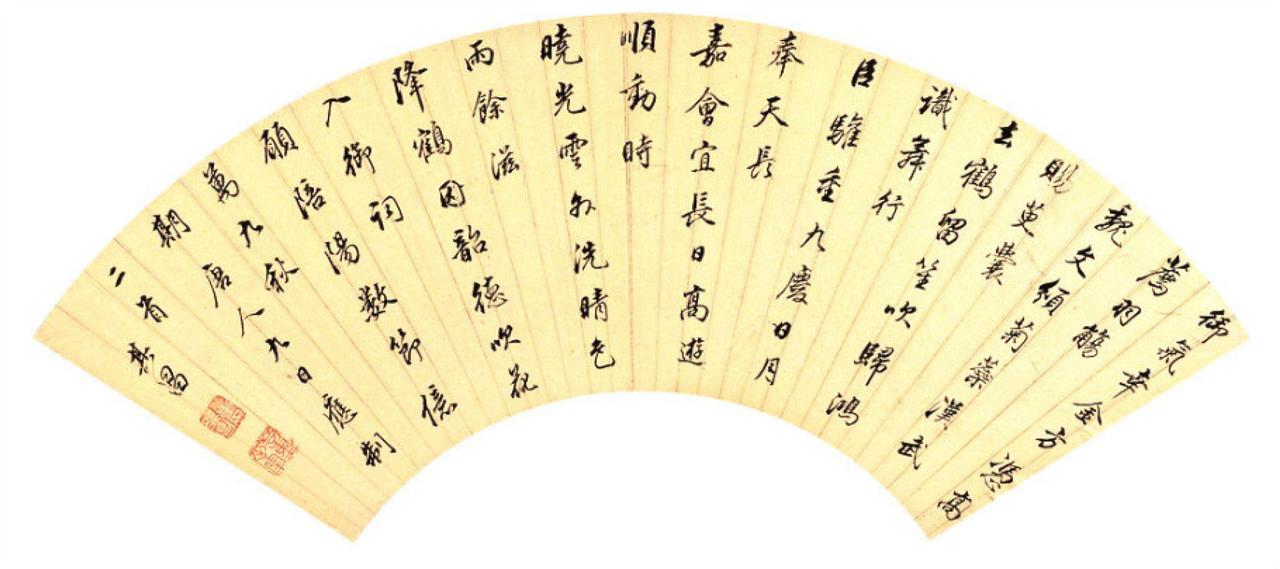 御氣幸金方憑高
薦羽觴
魏文頒菊蘂漢武
賜萸囊
去鶴留笙吹歸鴻
識舞行
臣驩重九慶日月
奉天長
嘉會宜長日高遊
順動時
曉光雲外洗晴色
雨餘滋
降鶴因韶德吹花
入御詞
願陪陽數節億
萬九秋
期唐人九日應制
二首
其昌